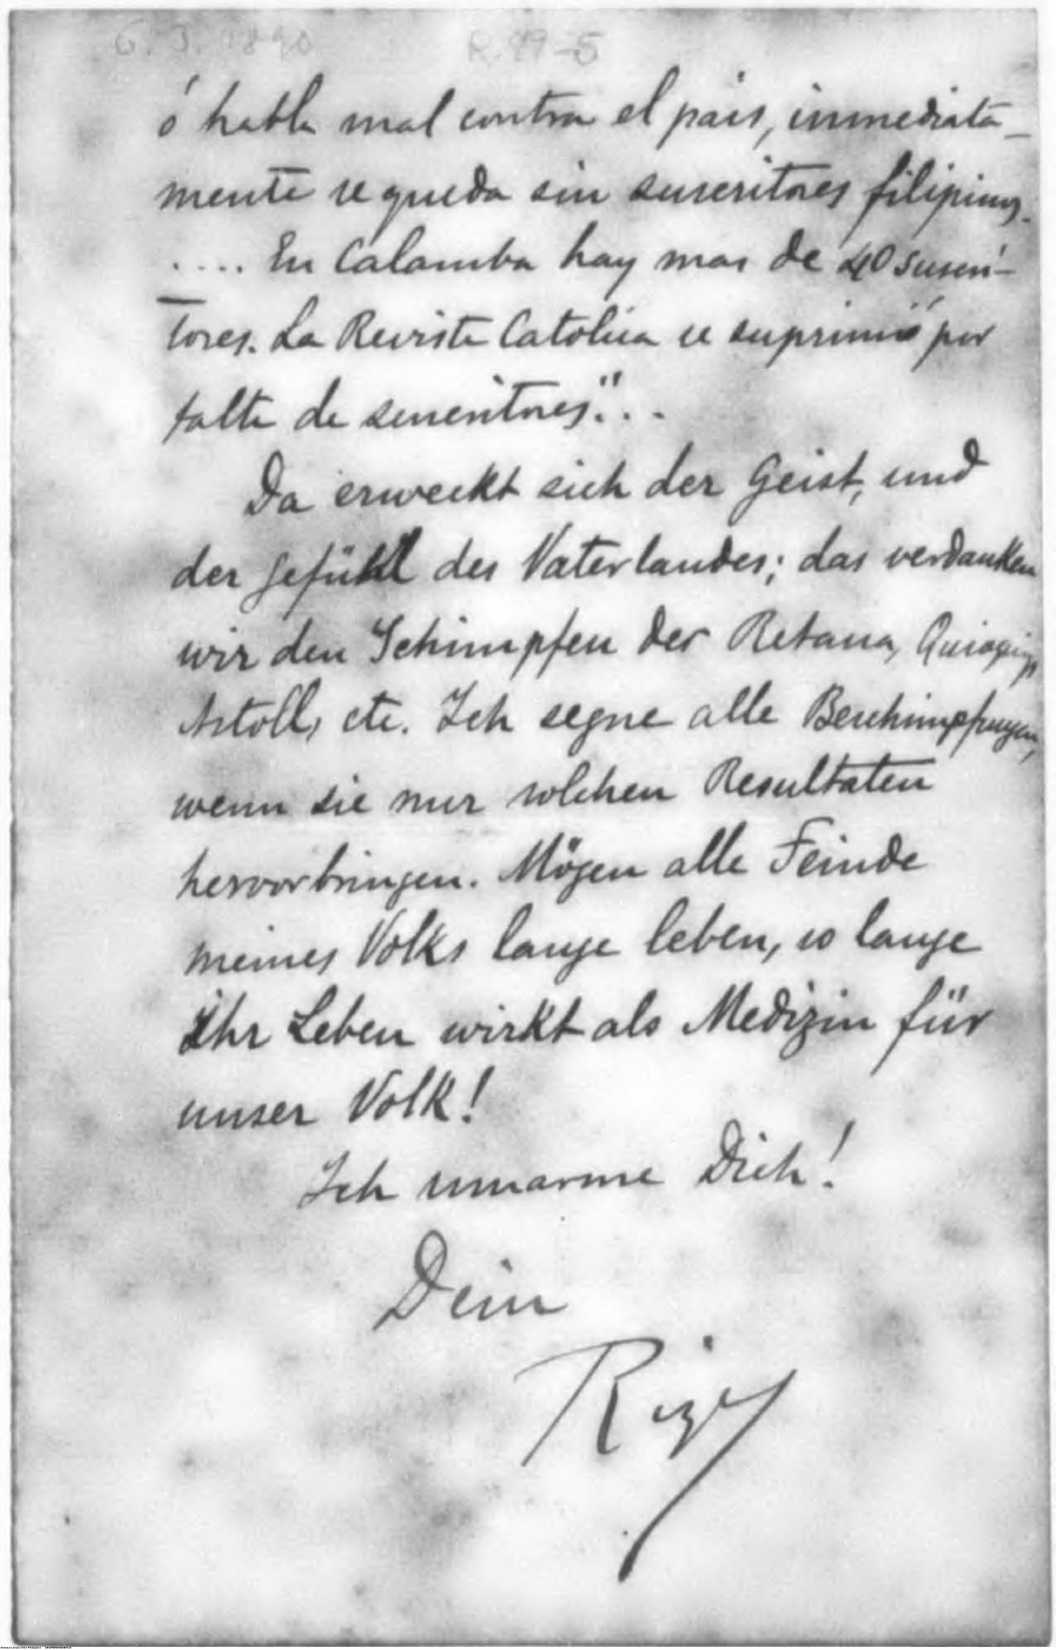 6. 3. 1890 R.49-5
ó habla mal contra el pais, inmediata-
mente se queda sin suscritores filipinos.
.... En Calamba hay mas de 40 suscri-
tores. La Revista Catolica se suprimió por
falta de suscritores"...
Da erweckt sich der Geist, und
der Gefühl des Vaterlandes; das verdanken
wir den Schimpfen der Retana, Quioquiap
Astoll, etc. Ich segne alle Beschimpfungen,
wenn sie nur solchen Resultaten
hervorbringen. Mögen alle Feinde
meines Volks lange leben, so lange
Ihr Leben wirkt als Medizin für
unser Volk!
Ich umarme Dich!
Dein
Rizal